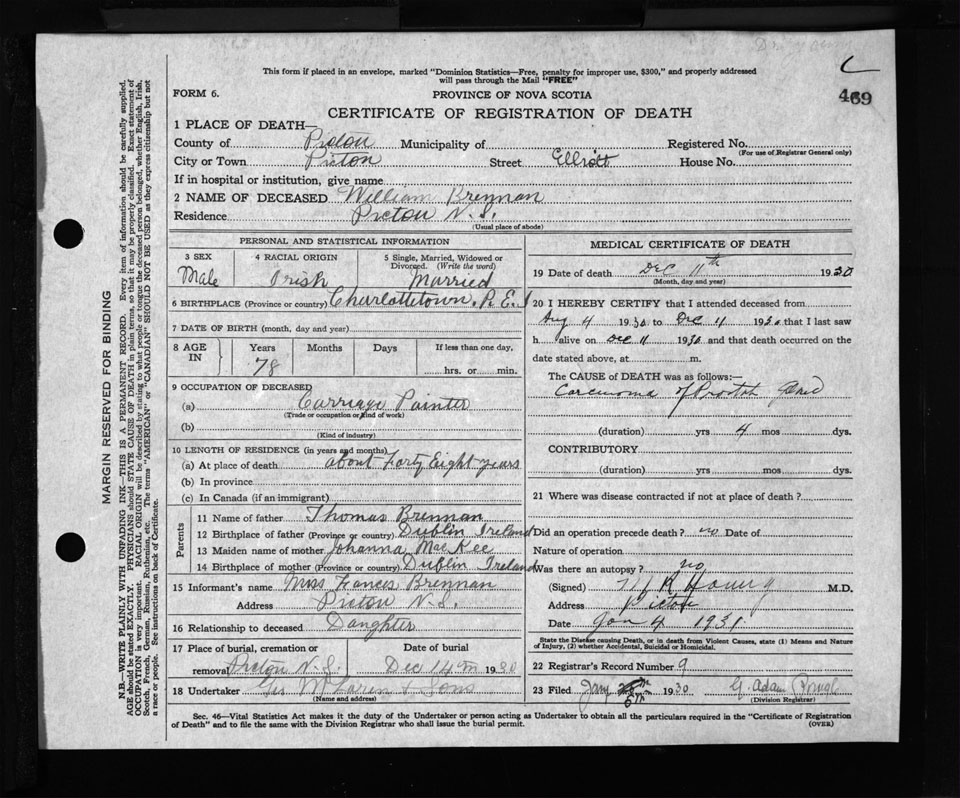 This form if placed in an envelope, marked "Dominion Statistics—Free, penalty for improper use, $300," and properly addressed
will pass through the Mail "FREE"
FORM 6.
PROVINCE OF NOVA SCOTIA
469
CERTIFICATE OF REGISTRATION OF DEATH
1 PLACE OF DEATH—
County of Pictou Municipality of Registered No.
(For use of Registrar General only)
City or Town Pictou Street Elliott House No.
If in hospital or institution, give name
2 NAME OF DECEASED William Brennan
Residence Pictou N.S.
(Usual place of abode)
PERSONAL AND STATISTICAL INFORMATION
3 SEX 4 RACIAL ORIGIN 5 Single, Married, Widowed or
Divorced. (Write the word)
Male Irish Married
6 BIRTHPLACE (Province or country) Charlottetown. P. E. I
7 DATE OF BIRTH (month, day and year)
8 AGE IN Years Months Days If less than one day,
78 hrs. or min.
9 OCCUPATION OF DECEASED
(a) Carriage Painter
(Trade or occupation or kind of work)
(b)
(Kind of industry)
10 LENGTH OF RESIDENCE (in years and months)
(a) At place of death about Forty Eight years
(b) In province
(c) In Canada (if an immigrant)
Parents
11 Name of father Thomas Brennan
12 Birthplace of father (Province or country) Dublin Ireland
13 Maiden name of mother Johanna MacKee
14 Birthplace of mother (Province or country) Dublin Ireland
15 Informant's name Miss Frances Brennan
Address Pictou N.S.
16 Relationship to deceased Daughter
17 Place of burial, cremation or Date of burial
removal Pictou N.S. Dec 14 1930
18 Undertaker Geo McLaren & Sons
(Name and address)
MEDICAL CERTIFICATE OF DEATH
19 Date of death Dec 11th 1930
(Month, day and year)
20 I HEREBY CERTIFY that I attended deceased from
Aug 4 1930 to Dec 11 1930 that I last saw
h alive on Dec 11 1930 and that death occurred on the
date stated above, at m.
The CAUSE of DEATH was as follows:—
Carcinoma of Prostate Gland
(duration) yrs 4 mos dys.
CONTRIBUTORY
(duration) yrs mos dys.
21 Where was disease contracted if not at place of death?
Did an operation precede death? no Date of
Nature of operation
Was there an autopsy? no
(Signed) M.D.
Address Pictou
Date Jan 4 1931
State the Disease causing Death, or in death from Violent Causes, state (1) Means and Nature
of Injury, (2) whether Accidental, Suicidal or Homicidal.
22 Registrar's Record Number 9
23 Filed Jany 5th 1930 G. Adam
(Division Registrar)
Sec. 46—Vital Statistics Act makes it the duty of the Undertaker or person acting as Undertaker to obtain all the particulars required in the "Certificate of Registration
of Death" and to file the same with the Division Registrar who shall issue the burial permit.
(OVER)
MARGIN RESERVED FOR BINDING
N.B.—WRITE PLAINLY WITH UNFADING INK—THIS IS A PERMANENT RECORD. Every item of information should be carefully supplied.
AGE should be stated EXACTLY. PHYSICIANS should STATE CAUSE OF DEATH in plain terms, so that it may be properly classified. Exact statement of
OCCUPATION is very important. RACIAL ORIGIN will be described by stating to what people or race the deceased person belonged, whether English, Irish,
Scotch, French, German, Russian, Ruthenian, etc. The terms "AMERICAN" or "CANADIAN" SHOULD NOT BE USED as they express citizenship but not
a race or people. See instructions on back of Certificate.